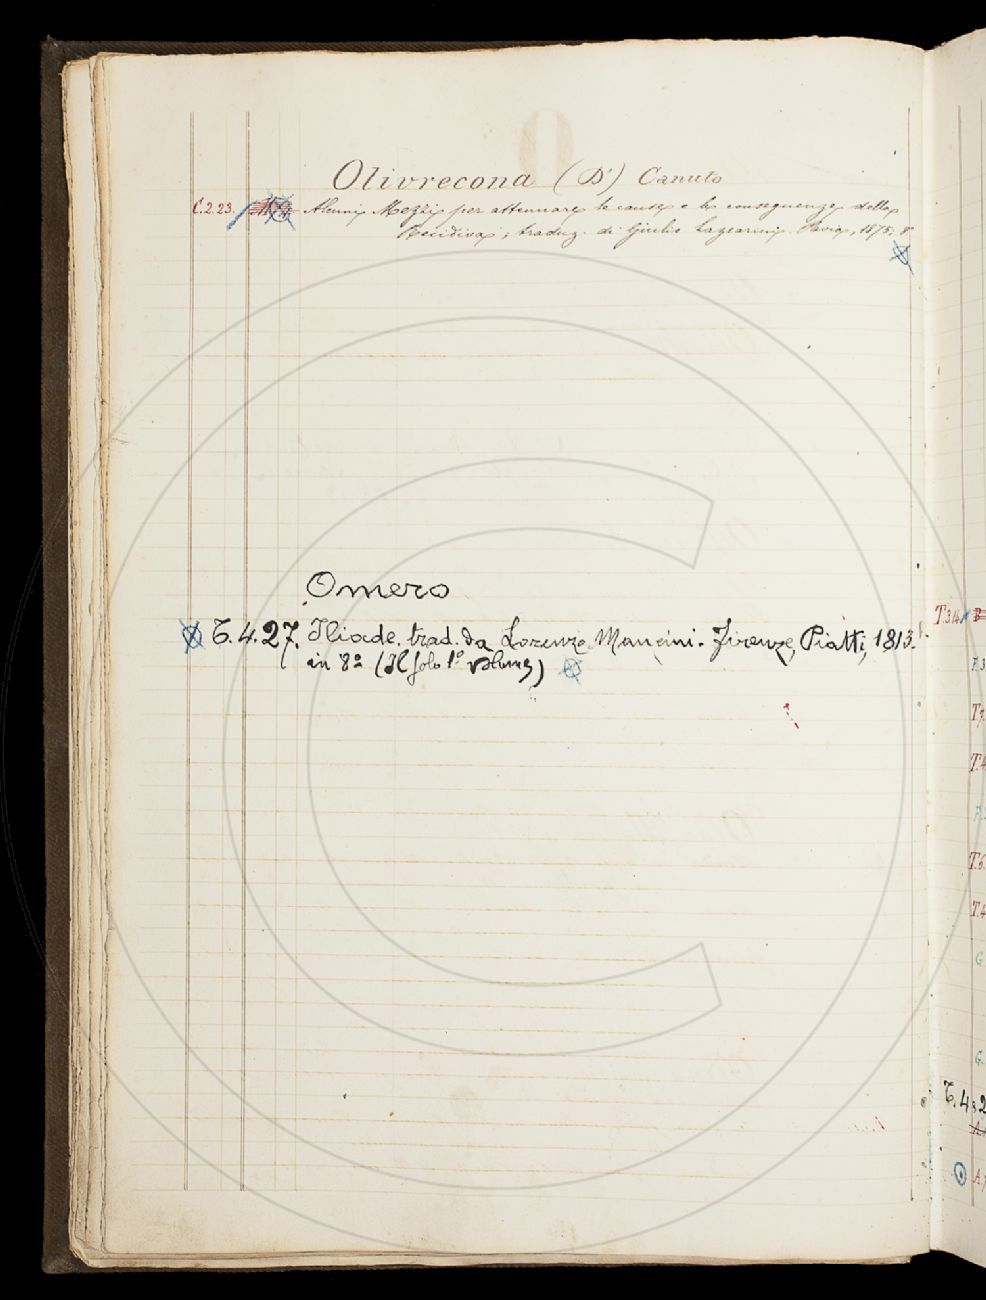 Olivecrona (D') Canuto
C.2.23. Alcuni Mezzi per attenuare le cause e le conseguenze della
Recidiva; traduz. di Giulio Lazzarini. Pavia, 1875, 8°
Omero
T.4.27. Iliade. trad. da Lorenzo Mancini. Firenze, Piatti, 1813.
in 8º (Il solo 1º volume)
T.3.14
T.
T.4
T.6.
T.4
G
G.
T.4.2
A.